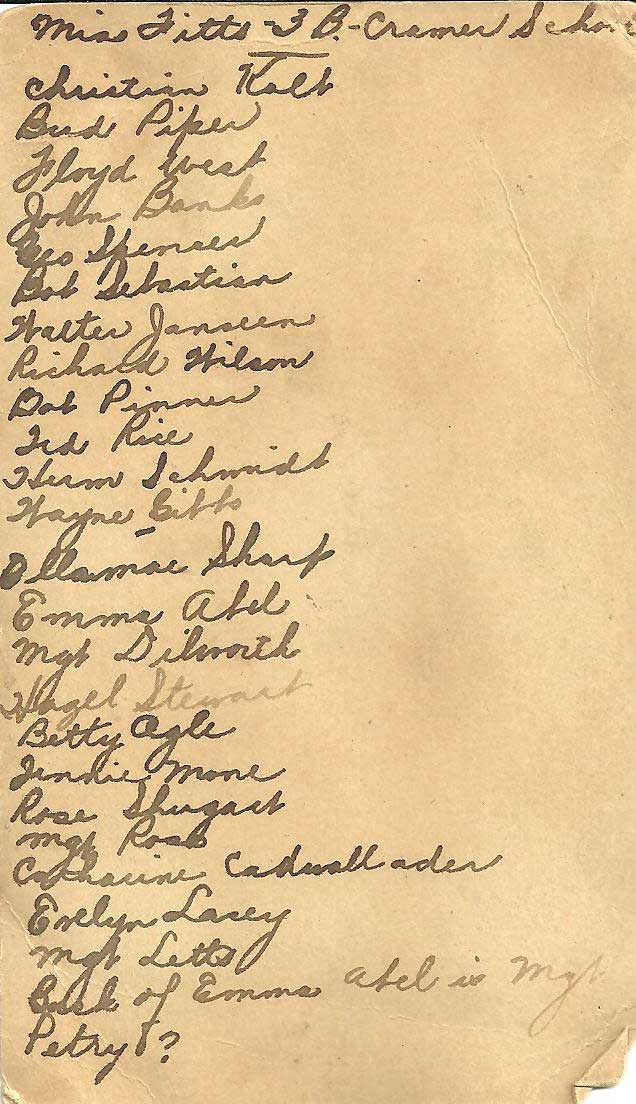 Miss Fitts - 3 B. - Cramer School
Christian Kalt
Bud Piper
Floyd West
John Banks
Geo Spencer
Bob Sebastian
Walter Janseen
Richard Wilson
Bob Pinner
Ted Rice
Herm Schmidt
Wayne Gibbs
-
Ollamae Sharp
Emma Abel
Mgt Dilworth
Hazel Stewart
Betty Agle
Jennie Mone
Rose Shugart
Mgt Ross
Catharine Cadwallader
Evelyn Lacey
Mgt Letts
Back of Emma Abel is Mgt
Petry?